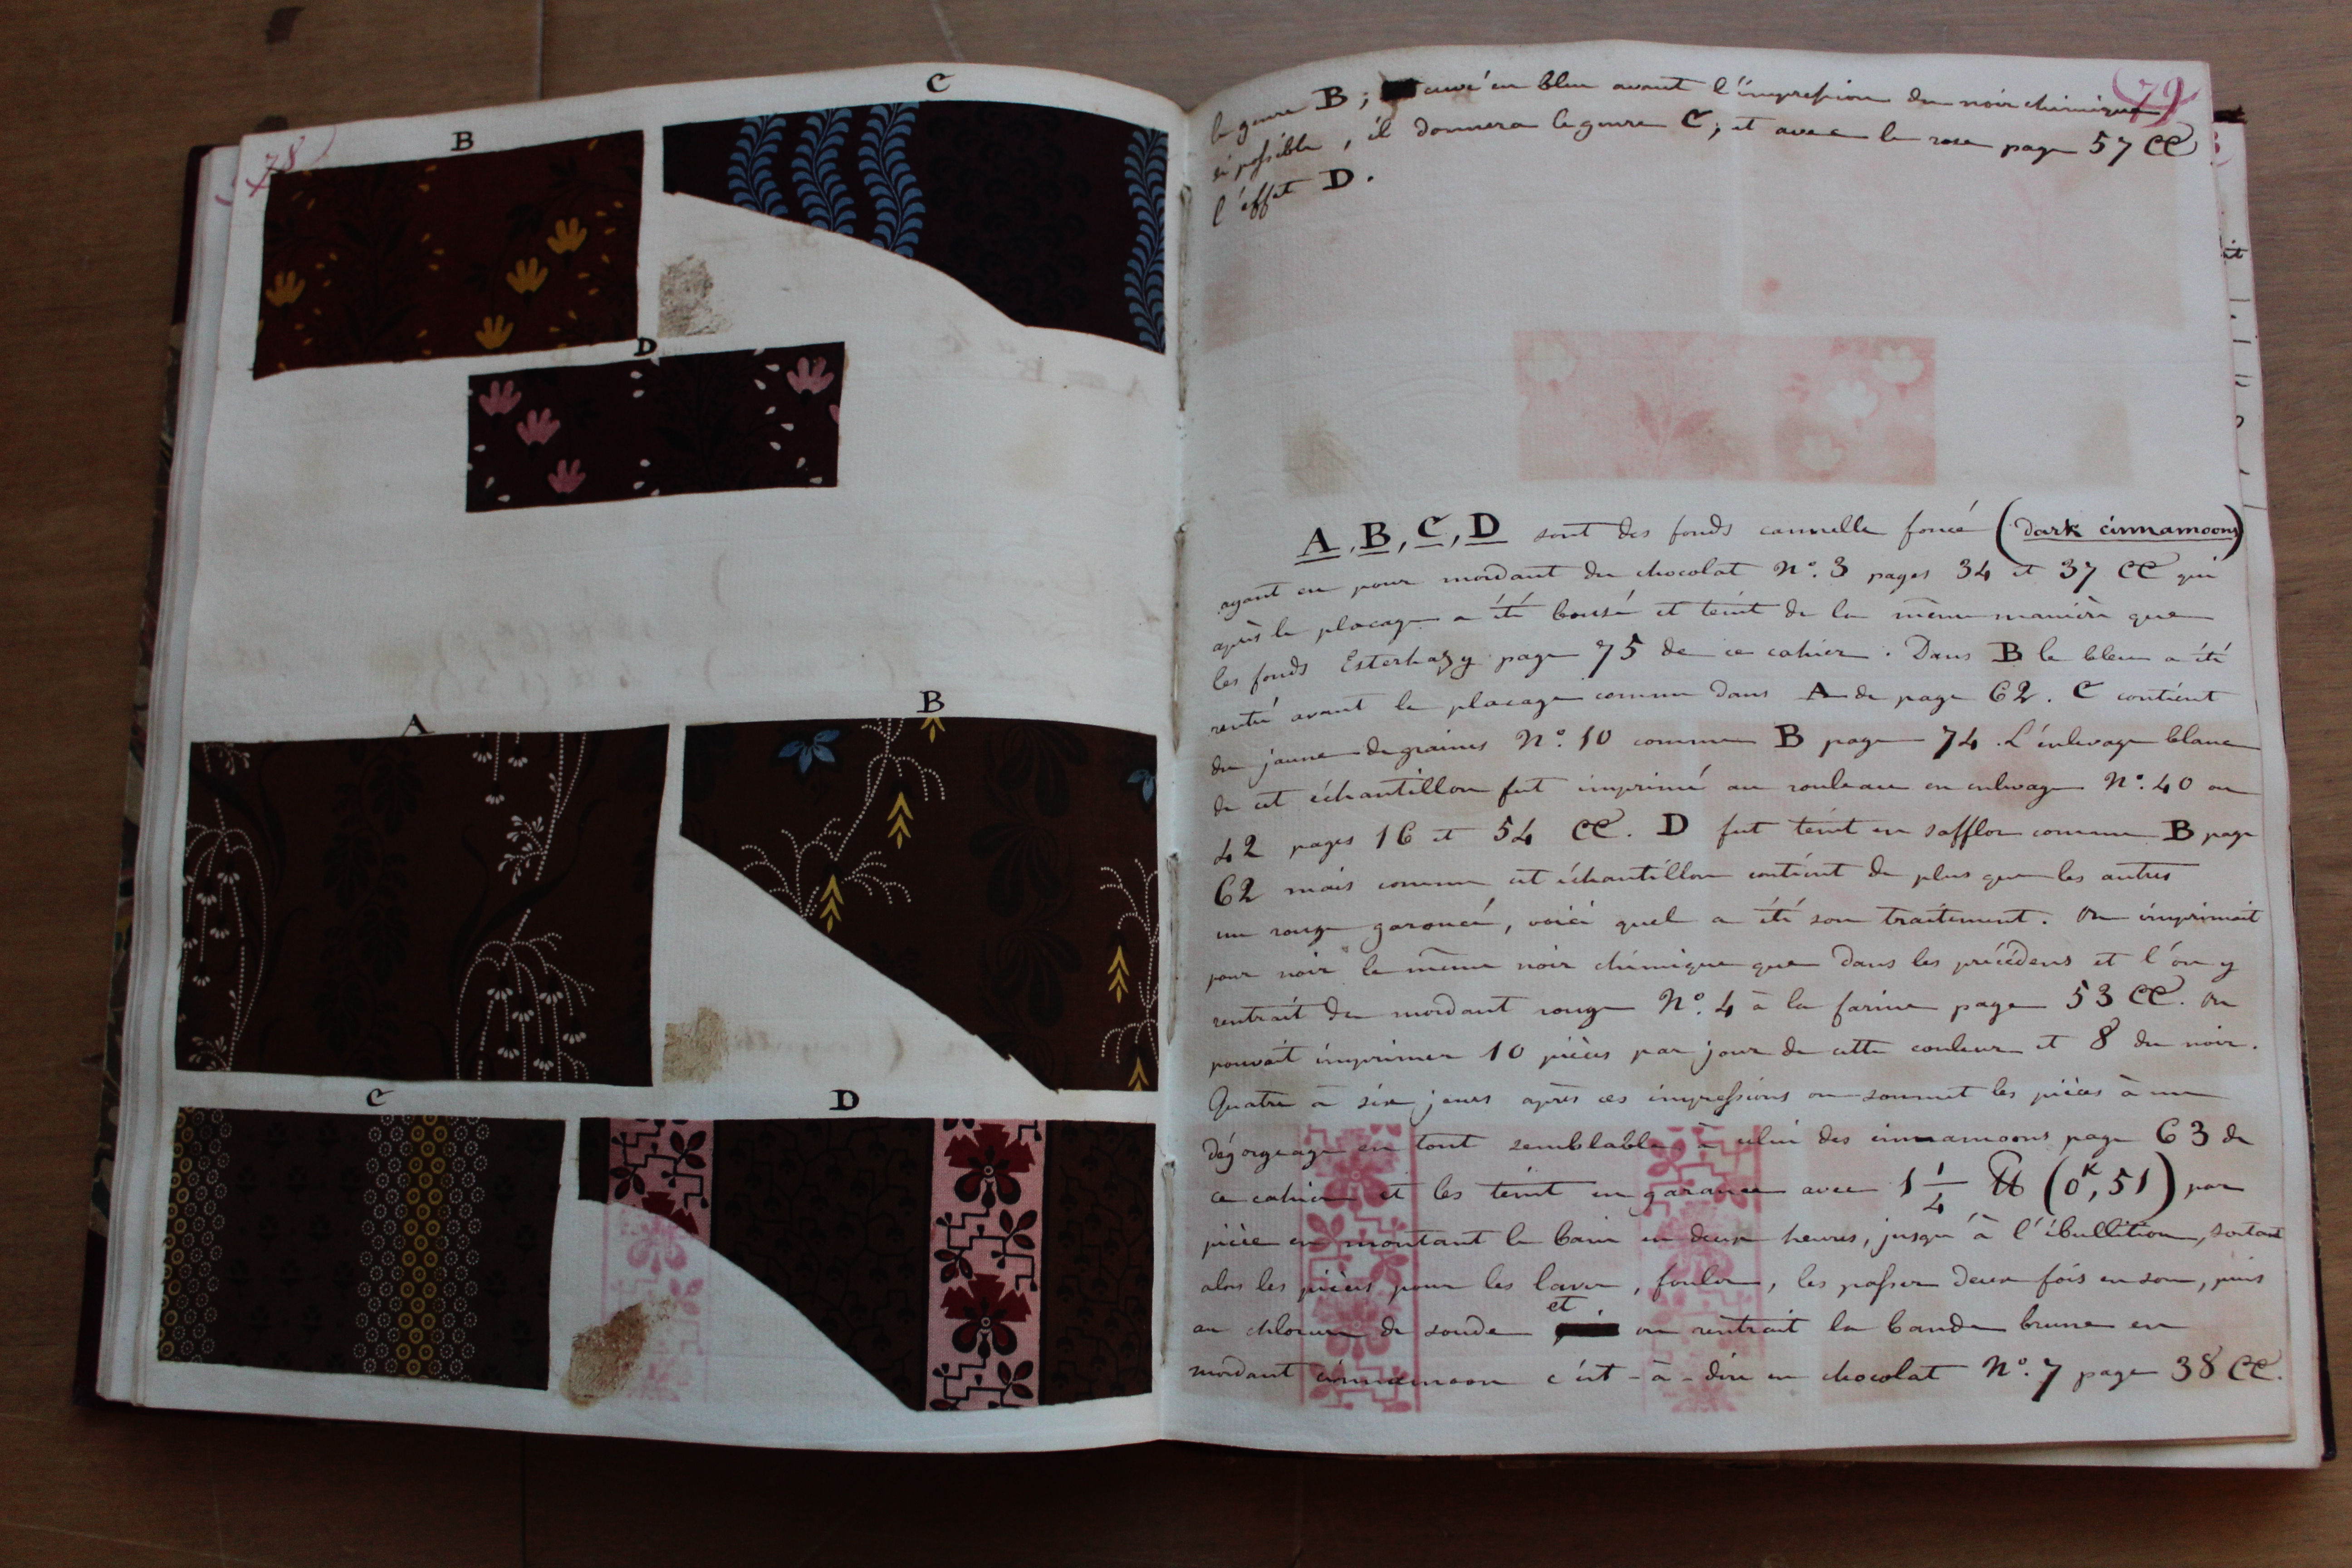 78
B
C
D
A
B
C
D
79
le genre B; cuvé en bleu avant l'impression du noir chimique,
si possible, il donnera le genre C; et avec le rose page 57 CC
l'effet D.
A, B, C, D sont des fonds cannelle foncé (dark cinnamoons)
ayant eu pour mordant du chocolat N°. 3 pages 34 et 37 CC qui
après le placage a été bousé et teint de la même manière que
les fonds Esterhazy page 75 de ce cahier. Dans B le bleu a été
rentré avant le placage comme dans A de page 62. C contient
du jaune de graines N°. 10 comme B page 74. L'enlevage blanc
de cet échantillon fut imprimé au rouleau en enlevage N°. 40 ou
42 pages 16 et 54 CC. D fut teint en safflor comme B page
62 mais comme cet échantillon contient de plus que les autres
un rouge garancé, voici quel a été son traitement. On imprimait
pour noir le même noir chimique que dans les précédens et l'on y
rentrait du mordant rouge N°. 4 à la farine page 53 CC. On
pouvait imprimer 10 pièces par jour de cette couleur et 8 du noir.
Quatre à six jours après ces impressions on soumet les pièces à un
dégorgeage en tout semblable à celui des cinnamoons page 63 de
ce cahier et les teint en garance avec 1 1/4 ℔ (0ᵏ,51) par
pièce en montant le bain en deux heures, jusqu'à l'ébullition, sortant
alors les pièces pour les laver, fouler, les passer deux fois en son, puis
au chlorure de soude et on rentrait la bande brune en
mordant cinnamoon c'est-à-dire en chocolat N°. 7 page 38 CC.